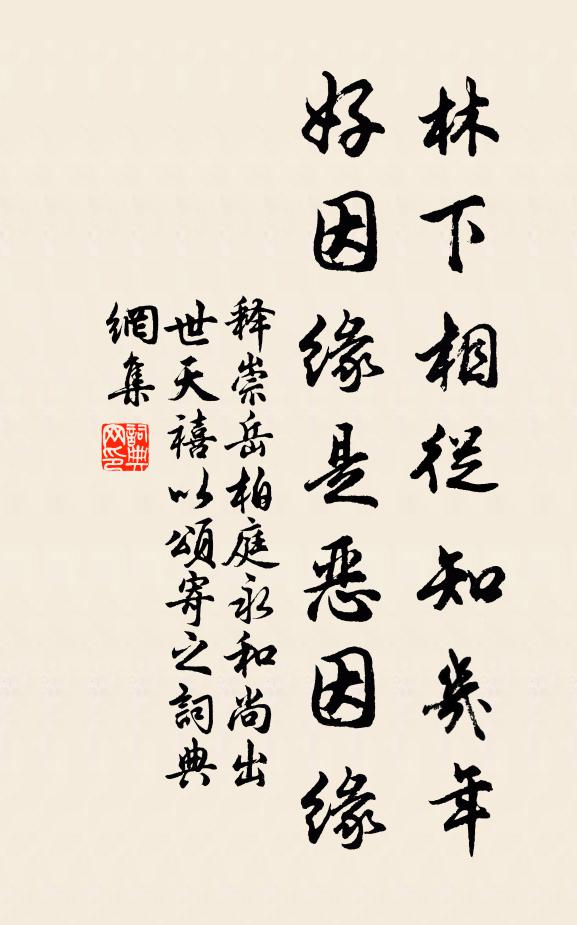 林下相從知幾年
好因緣是惡因緣
釋崇岳柏庭永和尚出
世天禧以頌寄之詞典
網集
詞典
网印